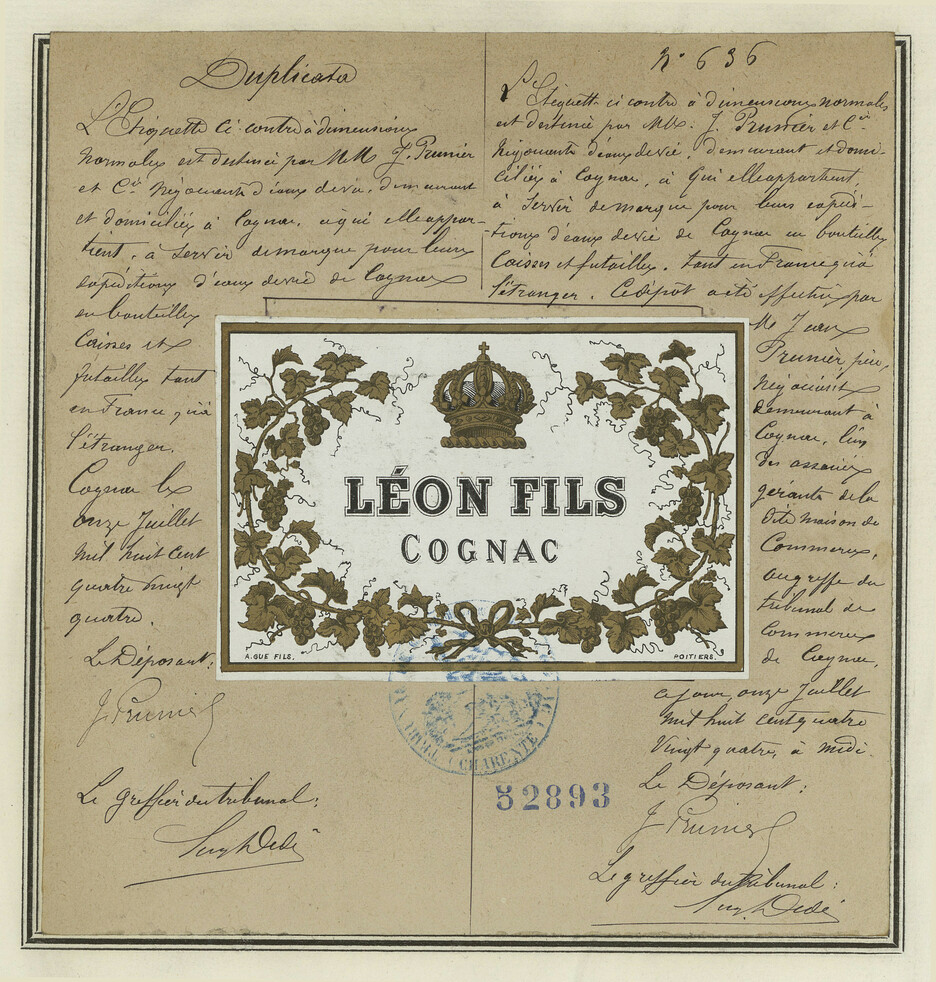 Duplicata
L'Etiquette ci-contre à dimensions
normales est destinée par MM. J. Prunier
et Cie Négociants d'eaux de vie, demeurant
et domiciliés à Cognac, à qui elle appar-
tient, à servir de marque pour leurs
expéditions d'eaux de vie de Cognac
en bouteilles
Caisses et
futailles tant
en France qu'à
l'étranger.
Cognac le
onze Juillet
mil huit cent
quatre vingt
quatre.
Le Déposant,
J. Prunier
Le greffier du tribunal:
N° 636
L'Etiquette ci contre à dimensions normales
est destinée par MM. J. Prunier et Cie
Négociants d'eaux de vie, demeurant et domi-
ciliés à Cognac, à qui elle appartient,
à servir de marque pour leurs expédi-
tions d'eaux de vie de Cognac en bouteilles
Caisses et futailles, tant en France qu'à
l'étranger. Ce dépôt a été effectué par
M. Jean
Prunier père,
Négociant
demeurant à
Cognac, l'un
des associés
gérants de la
dite maison de
Commerce,
au greffe du
tribunal de
Commerce
de Cognac,
ce jour, onze Juillet
mil huit cent quatre
Vingt quatre, à midi.
Le Déposant:
J. Prunier
Le greffier du tribunal:
LÉON FILS
COGNAC
A. GUE FILS.
POITIERS.
CHARENTE
52893